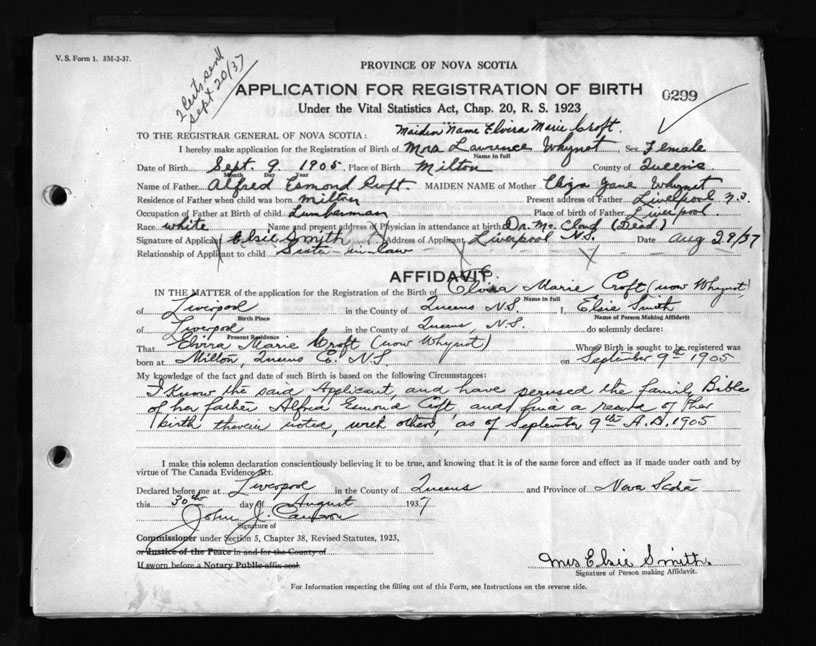 V. S. Form 1. 3M-2-37.
sept 20/37
PROVINCE OF NOVA SCOTIA
APPLICATION FOR REGISTRATION OF BIRTH
0299
Under the Vital Statistics Act, Chap. 20, R. S. 1923
Maiden Name Elvira Marie Croft.
TO THE REGISTRAR GENERAL OF NOVA SCOTIA:
I hereby make application for the Registration of Birth of Mrs Lawrence Whynot, Sex Female
Name in full
Date of Birth Sept. 9 1905, Place of Birth Milton County of Queens
Month Day Year
Name of Father Alfred Esmond Croft MAIDEN NAME of Mother Eliza Jane Whynot
Residence of Father when child was born Milton Present address of Father Liverpool N.S.
Occupation of Father at Birth of child Lumberman Place of birth of Father Liverpool.
Race white Name and present address of Physician in attendance at birth Dr. Mc. Cloud (Dead)
Signature of Applicant Elsie Smyth Address of Applicant Liverpool N.S. Date Aug 29/37
Relationship of Applicant to child Sister-in-law
AFFIDAVIT
IN THE MATTER of the application for the Registration of the Birth of Elvira Marie Croft (now Whynot)
Name in full
of Liverpool in the County of Queens N.S. I, Elsie Smith
Birth Place Name of Person Making Affidavit
of Liverpool in the County of Queens, N.S. do solemnly declare:
Present Residence
That Elvira Marie Croft (now Whynot) Whose Birth is sought to be registered was
born at Milton, Queens Co. N.S. on September 9th 1905
My knowledge of the fact and date of such Birth is based on the following Circumstances:
I know the said Applicant, and have perused the family Bible
of her father Alfred Esmond Croft, and find a record of her
birth therein noted, with others, as of September 9th A.D. 1905
I make this solemn declaration conscientiously believing it to be true, and knowing that it is of the same force and effect as if made under oath and by
virtue of The Canada Evidence Act.
Declared before me at Liverpool in the County of Queens and Province of Nova Scotia
this 30th day of August 1937
John J. Cameron
Signature of
Commissioner under Section 5, Chapter 38, Revised Statutes, 1923,
or Justice of the Peace in and for the County of
If sworn before a Notary Public affix seal.
Mrs Elsie Smith.
Signature of Person making Affidavit.
For Information respecting the filling out of this Form, see Instructions on the reverse side.